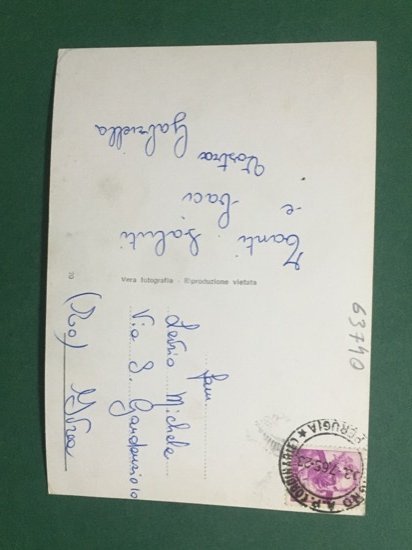 Tanti saluti
e baci
Vostra Gabriella
Vera fotografia - Riproduzione vietata
Fam.
Michele
Via S.
(To) Ivrea
63740
PERUGIA